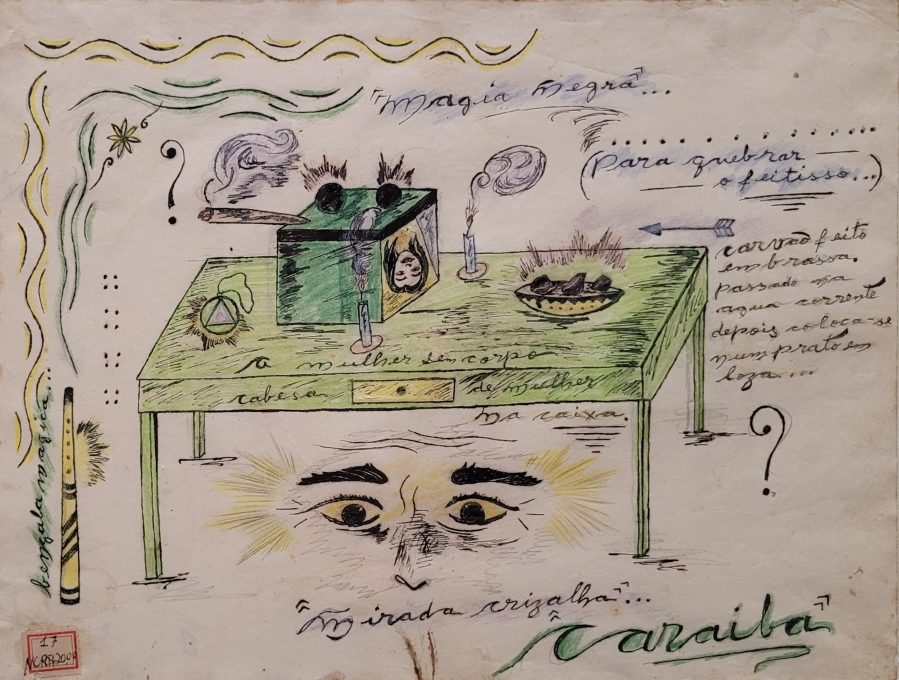 "Magia Negra"...
(Para quebrar
o feitisso...)
carvaõ feito
em brassa.
passado na
agua corrente
depois coloca-se
num prato em
loza....
A mulher sen corpo
cabesa de mulher
na caixa.
bengala magica...
"Mirada crizalha"...
"Caraiba"
17